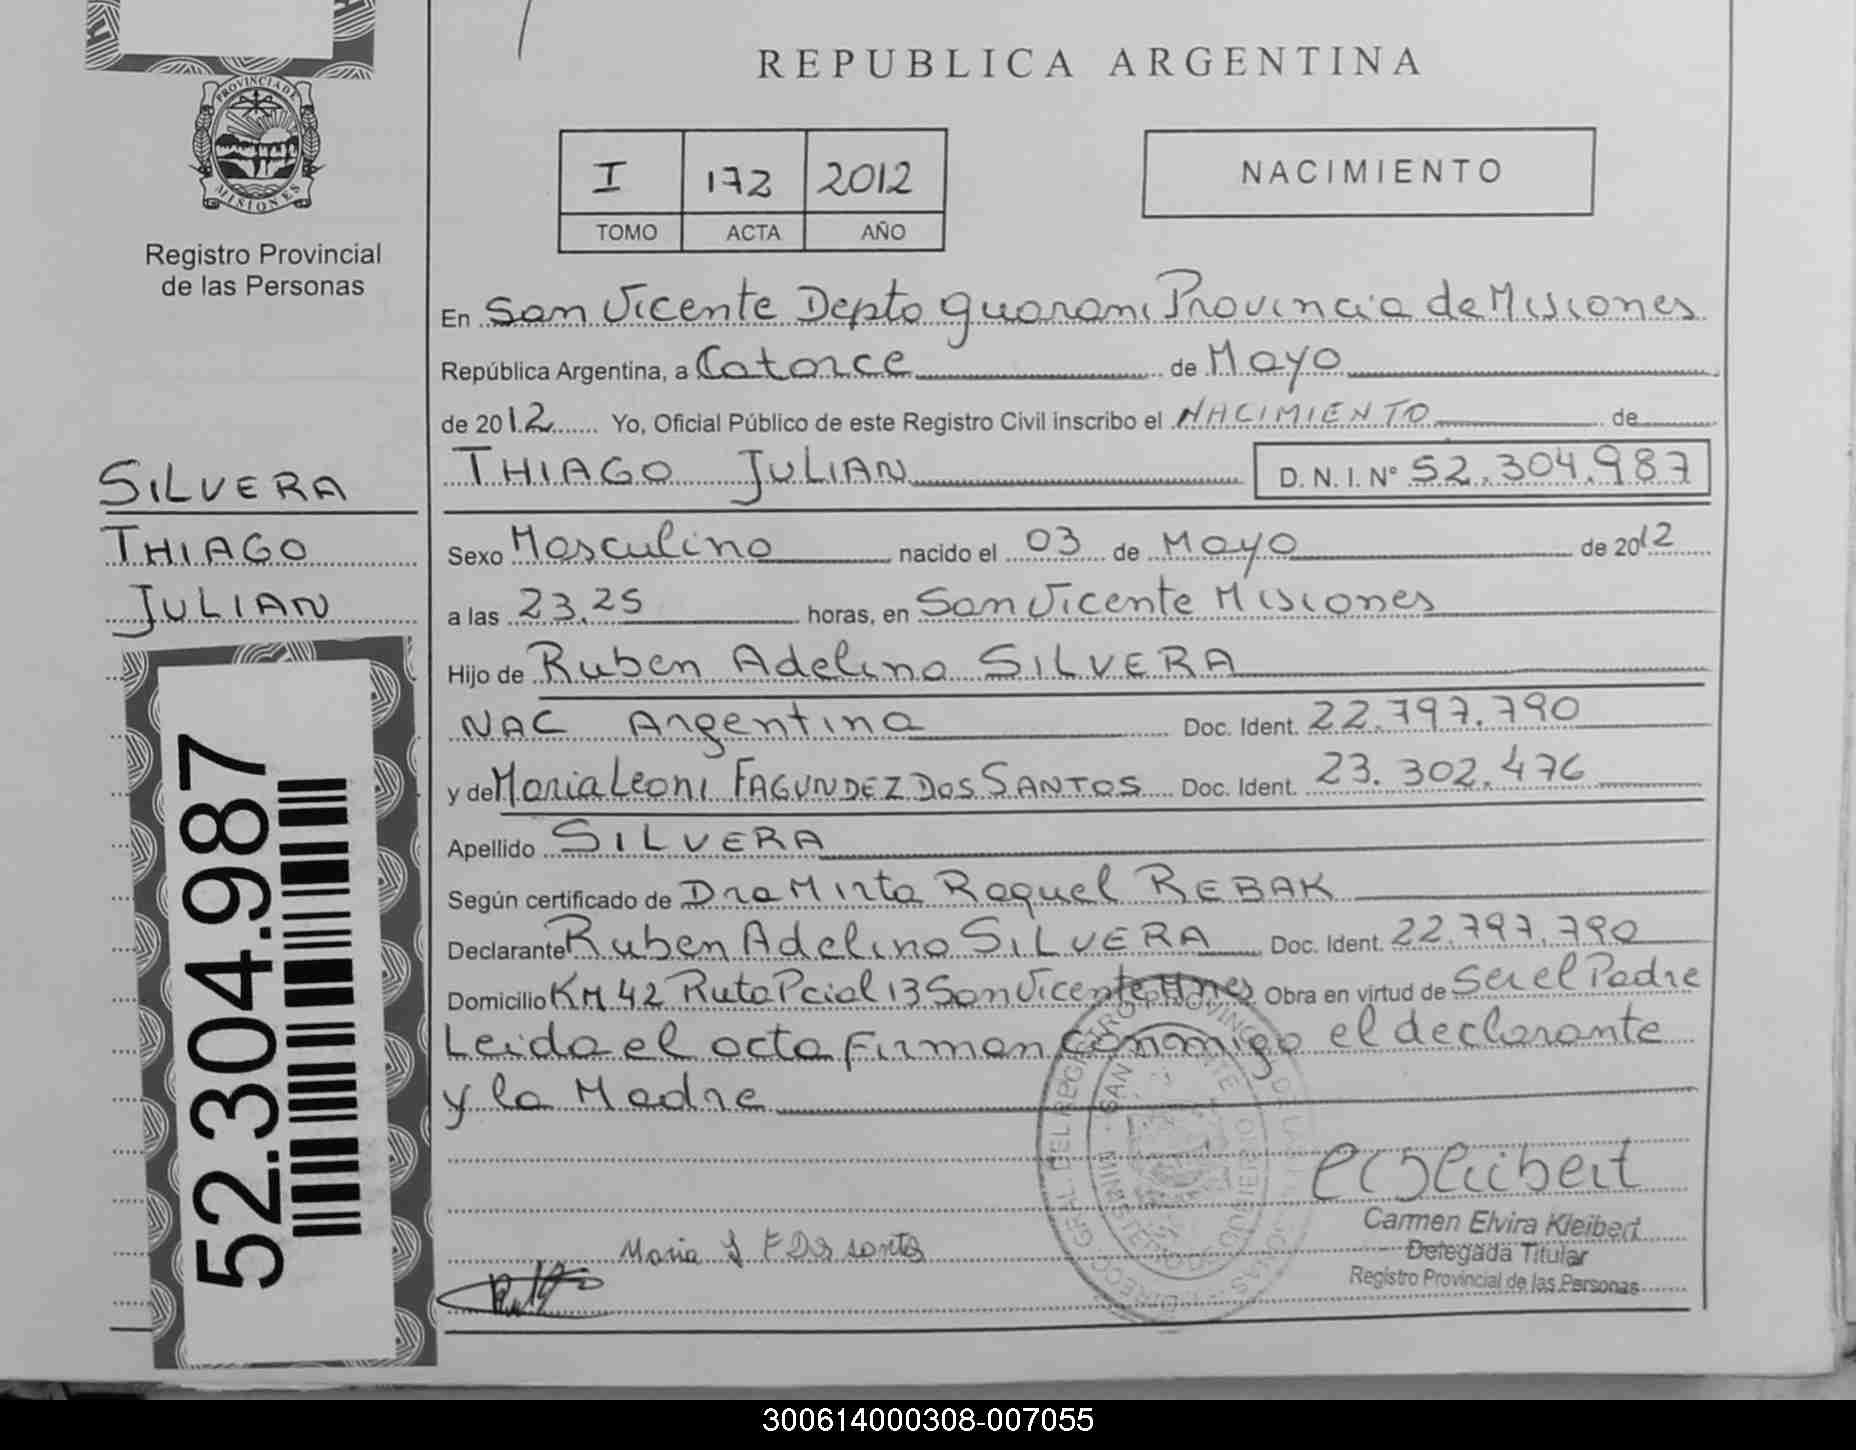 REPUBLICA ARGENTINA
PROVINCIA DE MISIONES
Registro Provincial
de las Personas
I 172 2012
TOMO ACTA AÑO
NACIMIENTO
En San Vicente Depto Guarani Provincia de Misiones
República Argentina, a Catorce de Mayo
de 2012 Yo, Oficial Público de este Registro Civil inscribo el NACIMIENTO de
THIAGO JULIAN D.N.I. Nº 52.304.987
SILVERA
THIAGO
JULIAN
Sexo Masculino nacido el 03 de Mayo de 2012
a las 23.25 horas, en San Vicente Misiones
Hijo de Ruben Adelino SILVERA
NAC Argentina Doc. Ident. 22.797.790
y de Maria Leoni FAGUNDEZ DOS SANTOS Doc. Ident. 23.302.476
Apellido SILVERA
Según certificado de Dra Mirta Raquel REBAK
Declarante Ruben Adelino SILVERA Doc. Ident. 22.797.790
Domicilio KM 42 Ruta Pcial 13 San Vicente Mnes Obra en virtud de Ser el Padre
Leida el acta firman conmigo el declarante
y la Madre
52.304.987
Maria L F Dos santos
Carmen Elvira Kleibert
Delegada Titular
Registro Provincial de las Personas
300614000308-007055